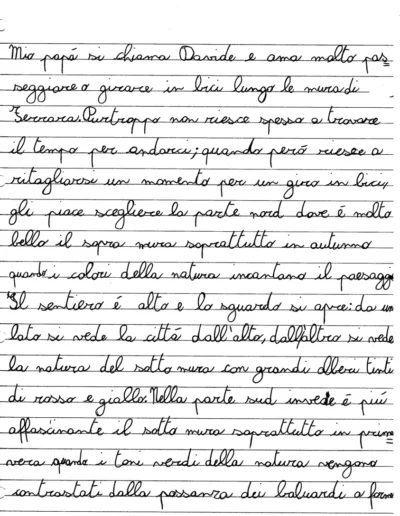 Mio papá si chiama Davide e ama molto pas=
seggiare o girare in bici lungo le mura di
Ferrara. Purtroppo non riesce spesso a trovare
il tempo per andarci; quando peró riesce a
ritagliarsi un momento per un giro in bici,
gli piace scegliere la parte nord dove é molto
bello il sopra mura soprattutto in autunno
quando i colori della natura incantano il paesagg
Il sentiero é alto e lo sguardo si apre: da un
lato si vede la cittá dall'alto, dall'altro si vede
la natura del sotto mura con grandi alberi tinti
di rosso e giallo. Nella parte sud invece é piú
affascinante il sotto mura soprattutto in prima=
vera quando i toni verdi della natura vengono
contrastati dalla possanza dei baluardi a form